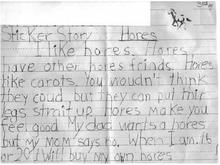 Sticker Story Hores
I like hores. Hores
have other hores frinds. Hores
like carots. You wouldn't think
they coud, but they can put thir
legs strait up. Hores make you
feel good. My dad wants a hores
but my mom says no. When I am 16
or 20 I will buy my own hores.